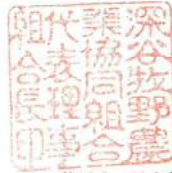 深谷牧野農
業協同組合
代表理事
組合長印